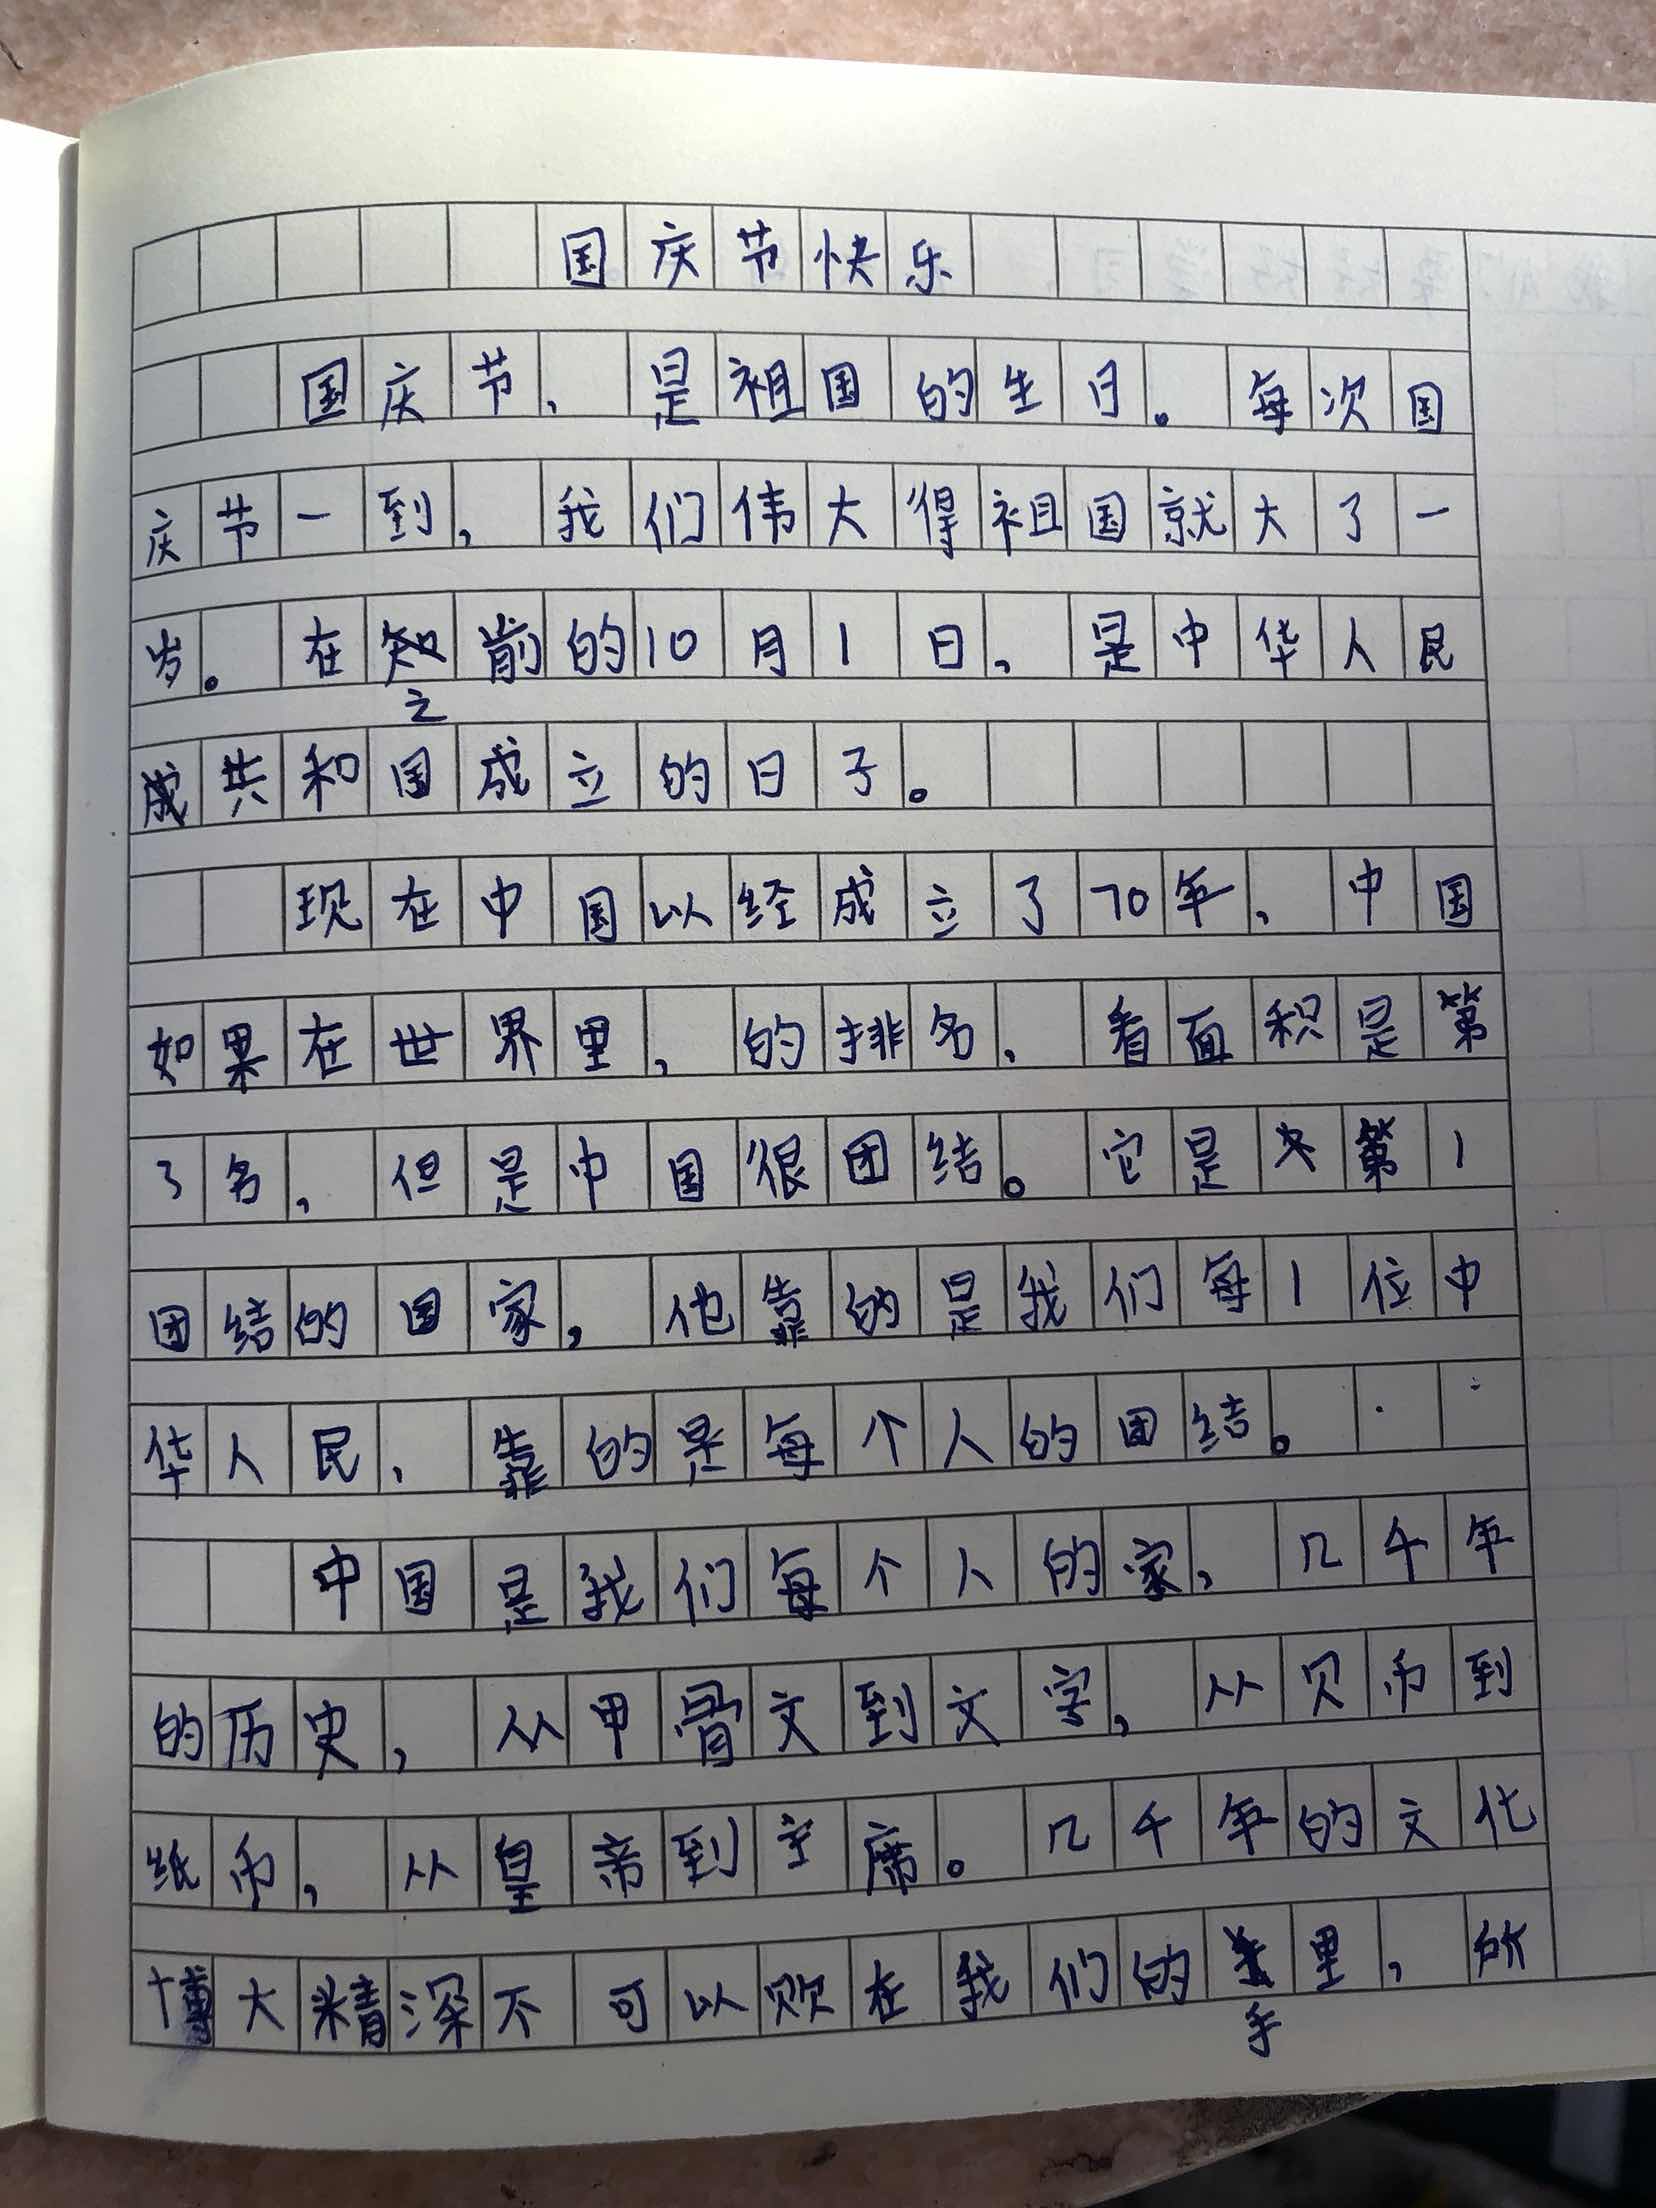 国庆节快乐
国庆节、是祖国的生日。每次国
庆节一到，我们伟大得祖国就大了一
岁。在之前的10月1日，是中华人民
共和国成立的日子。
现在中国以经成立了70年，中国
如果在世界里，的排名，看面积是第
3名，但是中国很团结。它是第1
团结的国家，他靠的是我们每1位中
华人民、靠的是每个人的团结。
中国是我们每个人的家，几千年
的历史，从甲骨文到文字，从贝币到
纸币，从皇帝到主席。几千年的文化
博大精深不可以败在我们的手里，所